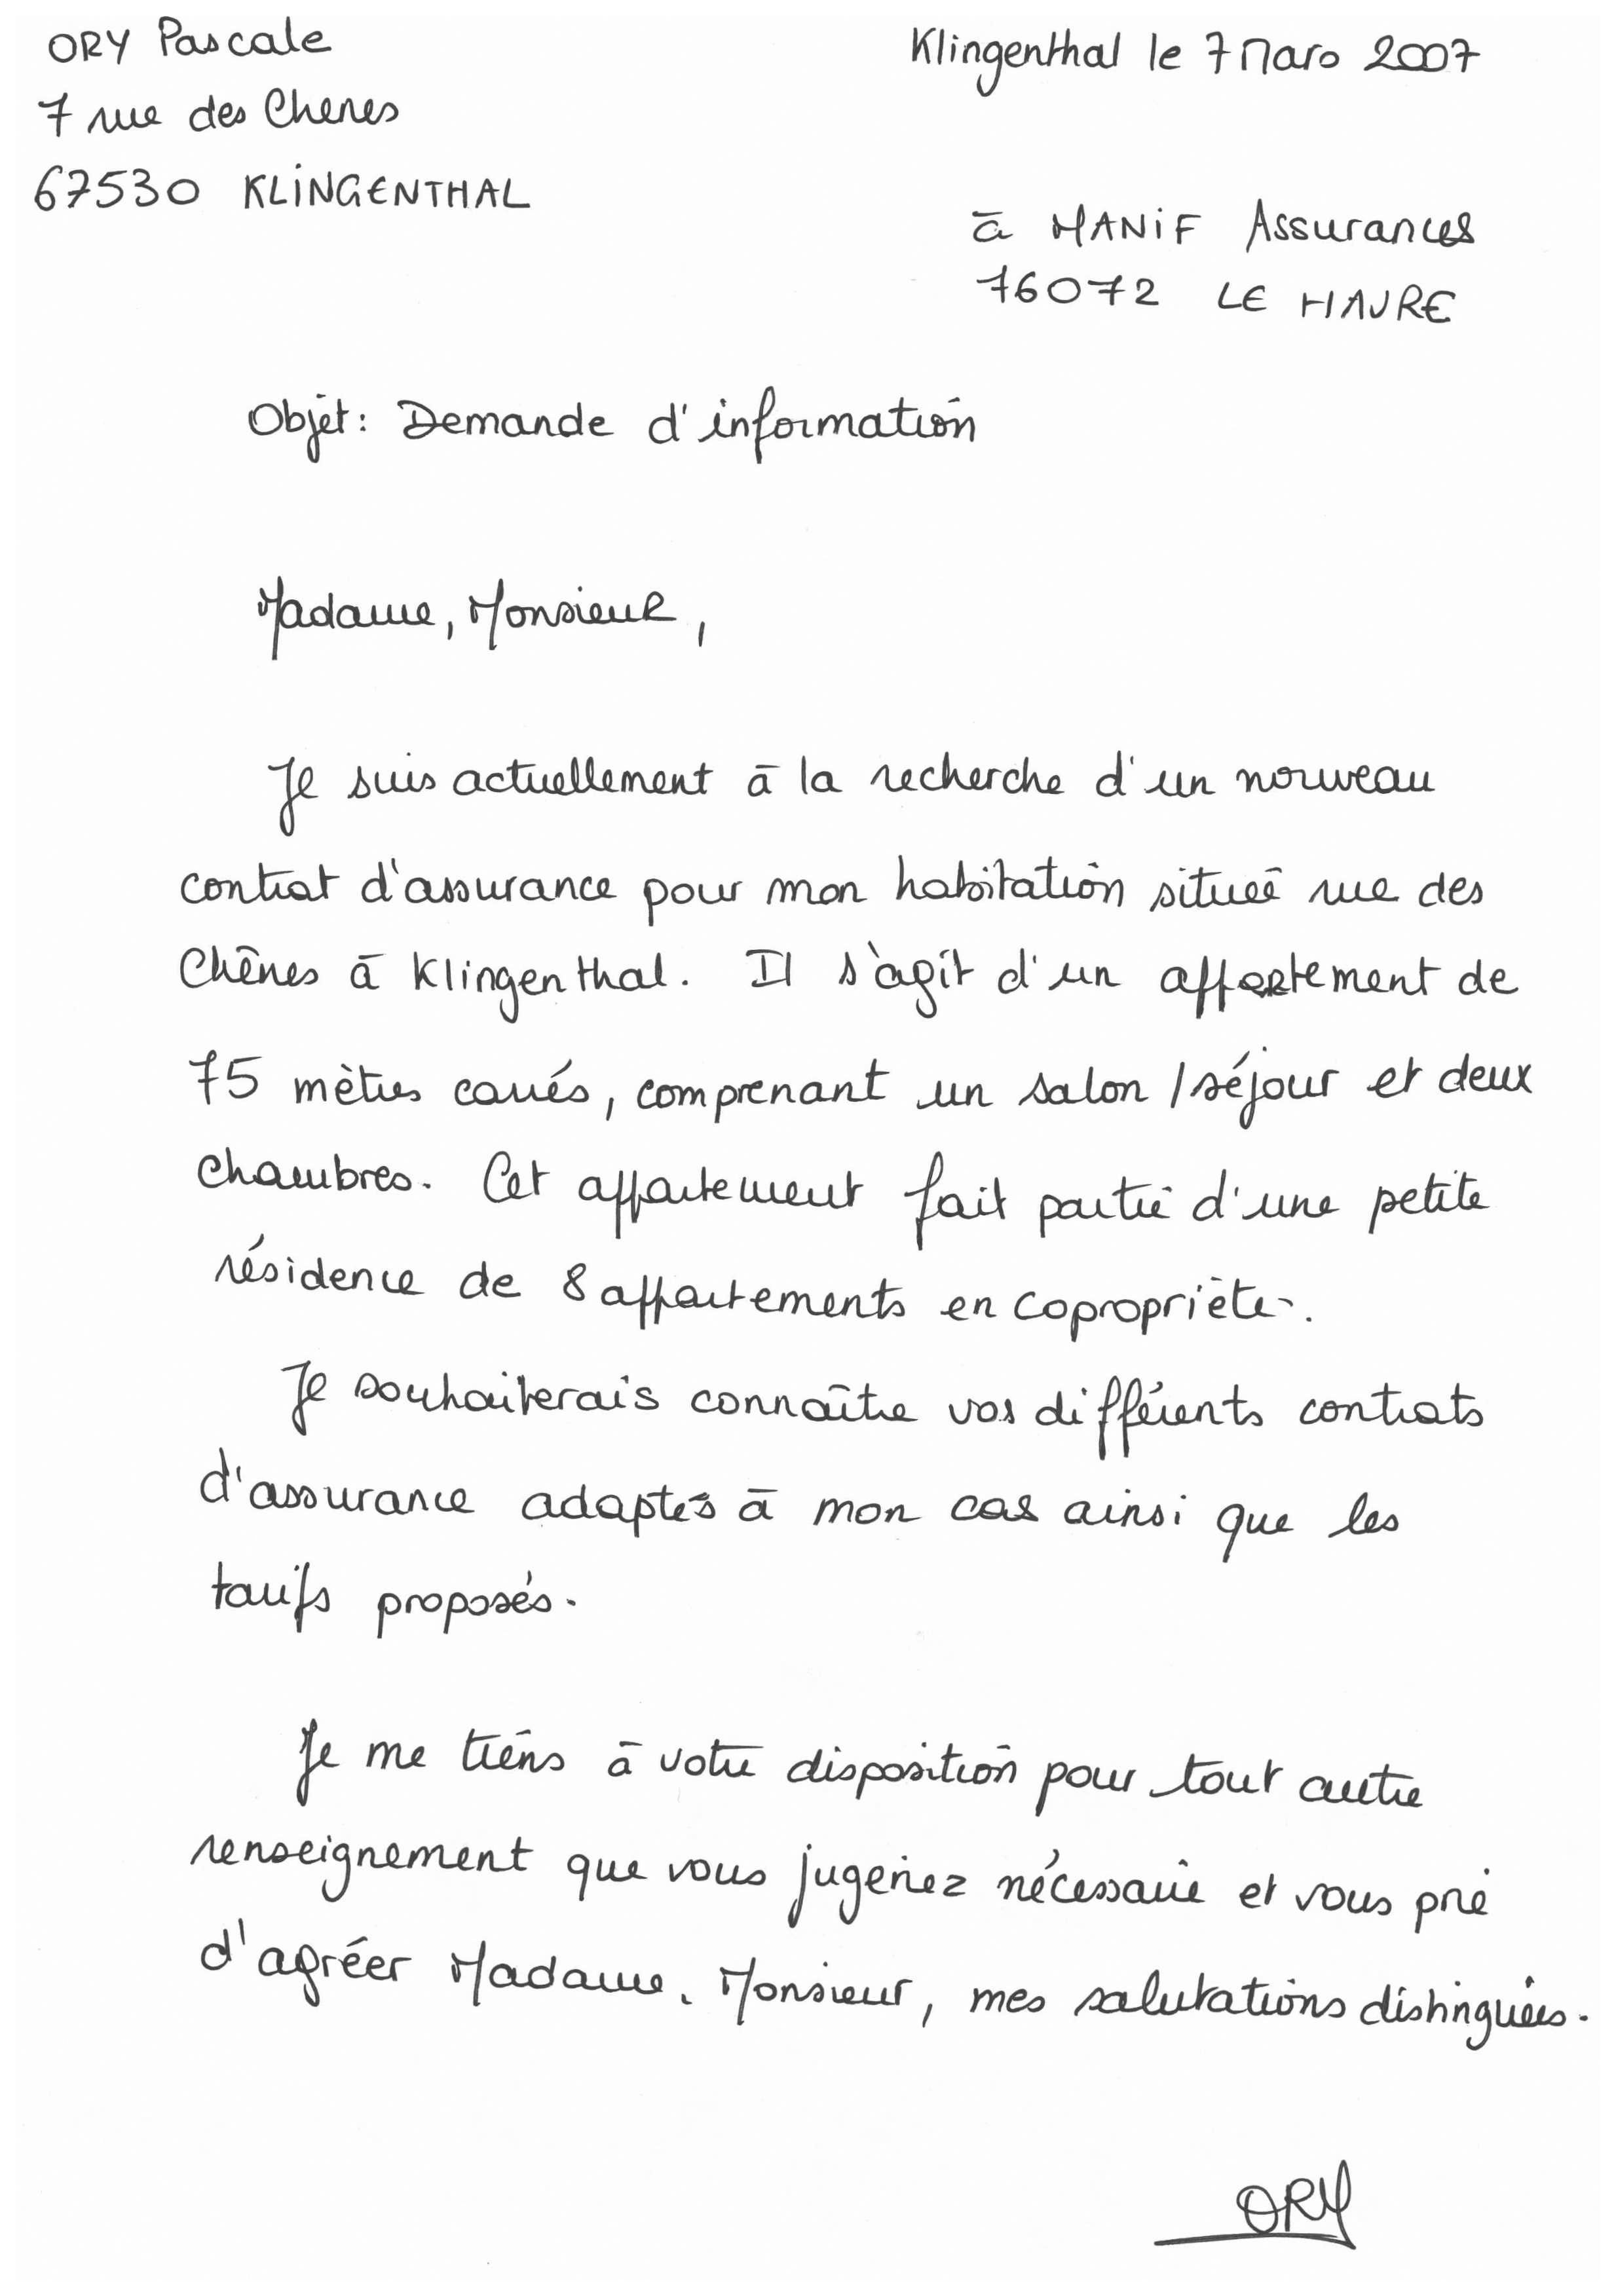 ORY Pascale
7 rue des Chenes
67530 KLINGENTHAL
Klingenthal le 7 Mars 2007
à MANIF Assurances
76072 LE HAVRE
Objet: Demande d'information
Madame, Monsieur,
Je suis actuellement à la recherche d'un nouveau
contrat d'assurance pour mon habitation située rue des
Chênes à Klingenthal. Il s'agit d'un appartement de
75 mètres carrés, comprenant un salon / séjour et deux
chambres. Cet appartement fait partie d'une petite
résidence de 8 appartements en copropriété.
Je souhaiterais connaître vos différents contrats
d'assurance adaptés à mon cas ainsi que les
tarifs proposés.
Je me tiens à votre disposition pour tout autre
renseignement que vous jugeriez nécessaire et vous prie
d'agréer Madame, Monsieur, mes salutations distinguées.
ORY